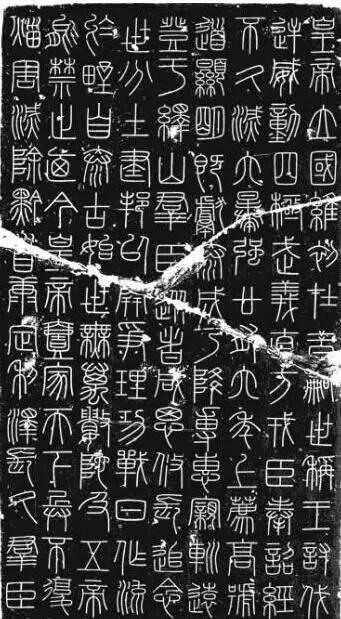 皇帝立國維初在昔嗣世稱王討伐
逆威動四極武義直方戎臣奉詔經
不久滅六暴強廿有六年上薦高號
道顯明既獻泰成乃降專惠親巡遠
登于繹山群臣從者咸思攸長追念
世分土建邦以開爭理功戰日作流
於野自泰古始世無萬數陀及五帝
能禁止迺今皇帝壹家天下兵不復
災害滅除黔首康定利澤長久群臣